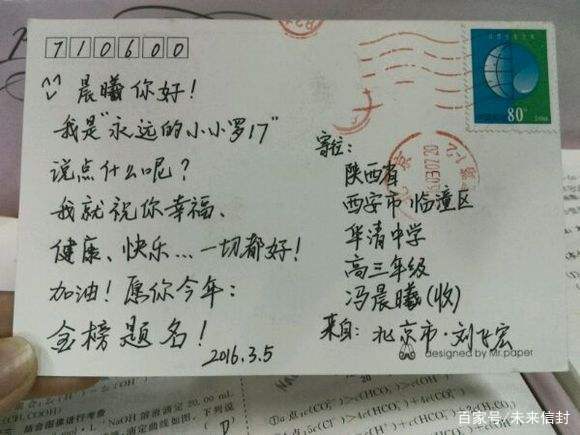 710600
晨曦你好！
我是“永远的小小罗17”
说点什么呢？
我就祝你幸福、
健康、快乐…一切都好！
加油！愿你今年：
金榜题名！
2016.3.5
80分
寄往：
陕西省
西安市 临潼区
华清中学
高三年级
冯晨曦(收)
来自：北京市·刘飞宏
designed by Mr.paper
百家号/未来信封